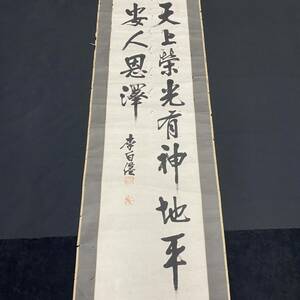 天上榮光有神地平
安人恩澤
李百濬